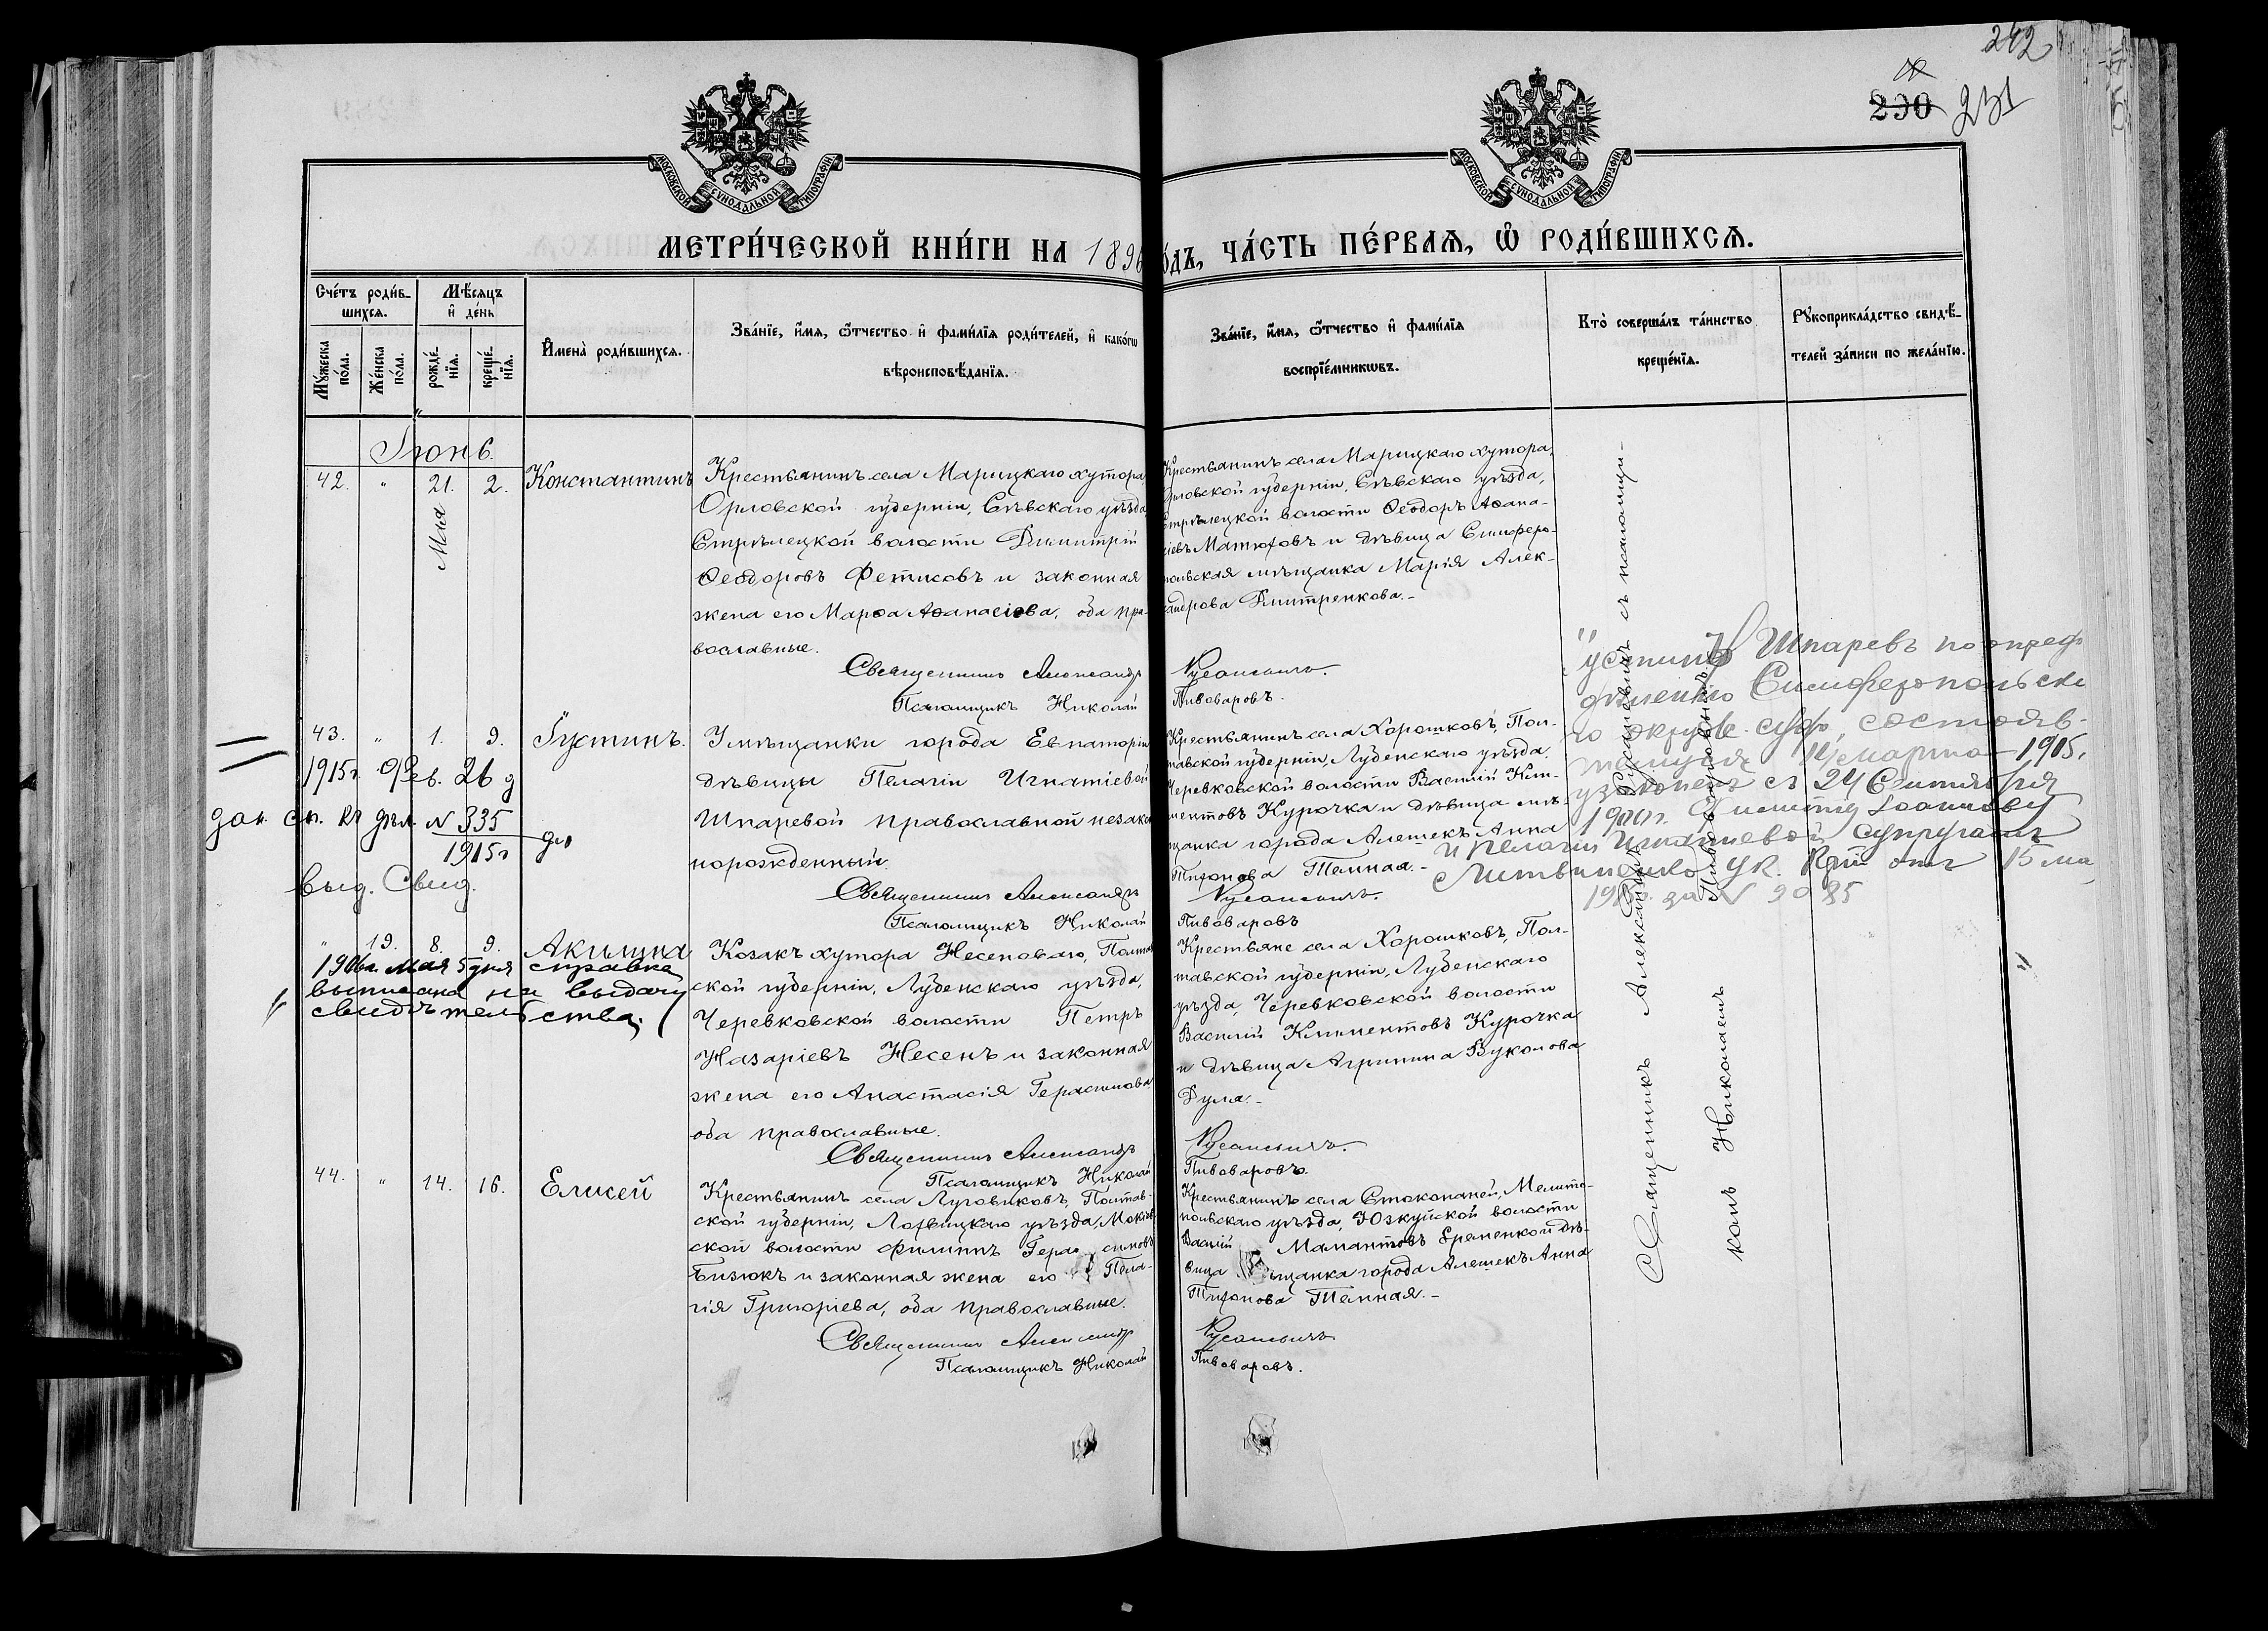 242
230 231
МОСКОВСКОЙ СѴНОДАЛЬНОЙ ТИПОГРАФІИ
МОСКОВСКОЙ СѴНОДАЛЬНОЙ ТИПОГРАФІИ
МЕТРИ́ЧЕСКОЙ КНИ́ГИ НА 1896 о́дъ, ЧА́СТЬ ПЕ́РВАѦ, Ѡ҆ РОДИ́ВШИХСѦ.
Сче́тъ роди́в-
шихсѧ.
Мꙋ́жеска по́ла.
Же́нска по́ла.
Мѣ́сѧцъ и҆ де́нь
рожде́-
нїѧ.
креще́-
нїѧ.
И҆мена̀ роди́вшихсѧ.
Зва́нїе, и҆́мѧ, ѻ҆́тчество и҆ фамилїѧ роди́телей, и҆ како́гѡ
вѣроисповѣ́данїѧ.
Зва́нїе, и҆́мѧ, ѻ҆́тчество и҆ фами́лїѧ
воспрїе́мникѡвъ.
Кто̀ соверша́лъ та́инство
креще́нїѧ.
Рꙋкоприкла́дство свидѣ́-
телей за́писи по жела́нїю.
Іюнь.
42. " 21. 2. Константинъ
Мая
Крестьянинъ села Марицкаго хутора
Орловской губерніи, Сѣвскаго уѣзда
Стрѣлецкой волости Димитрій
Ѳеодоровъ Фетисовъ и законная
жена его Марѳа Аѳанасіева, оба пра-
вославные.
Священникъ Александръ
Псаломщикъ Николай
Крестьянинъ села Марицкаго хутора,
Орловской губерніи, Сѣвскаго уѣзда,
Стрѣлецкой волости Ѳеодоръ Аѳана-
сіевъ Матюховъ и дѣвица Симферо-
польская мѣщанка Марія Алек-
сандрова Дмитренкова.-
Русановичъ.
Пивоваровъ.
43. " 1. 9. Іустинъ.
1915г. Фев. 26 д
№ 335
1915г
выд. Свид.
У мѣщанки города Евпаторіи
дѣвицы Пелагіи Игнатіевой
Шпаревой православной незако
норожденный.
Священникъ Александръ
Псаломщикъ Николай
Крестьянинъ села Хорошковъ, Пол-
тавской губерніи, Лубенскаго уѣзда,
Черевковской волости Василій Кли-
ментовъ Курочка и дѣвица мѣ-
щанка города Алешекъ Анна
Тихонова Темная.-
Русановичъ.
Пивоваровъ
"Іустинъ Шпаревъ по опре-
дѣленію Симферопольска
го окруж. суда, состояв-
шемуся 14 марта 1915,
узаконенъ съ 24 Сентября
Филиппу Іоаннову
и Пелагіи Игнатіевой супругамъ
Литвиненко ук. от 15 ма
за № 9085
" 19. 8. 9. Акилина
1906г. Мая 5 дня справка
выписана на выдачу
свидѣтельства.
Козакъ хутора Несеноваго, Полтав
ской губерніи, Лубенскаго уѣзда,
Черевковской волости Петръ
Назаріевъ Несенъ и законная
жена его Анастасія Герасимова
оба православные.
Священникъ Александръ
Псаломщикъ Николай
Крестьяне села Хорошковъ, Пол-
тавской губерніи, Лубенскаго
уѣзда, Черевковской волости
Василій Климентовъ Курочка
и дѣвица Агрипина Вуколова
Дуля.-
Русановичъ.
Пивоваровъ.
44. " 14. 16. Елисей
Крестьянинъ села Луговиковъ, Полтав-
ской губерніи, Лохвицкаго уѣзда, Мокіев-
ской волости Филиппъ Герасимовъ
Бизюкъ и законная жена его Пела-
гія Григоріева, оба православные.
Священникъ Александръ
Псаломщикъ Николай
Крестьянинъ села Стокопаней, Мелито-
польскаго уѣзда, Юзкуйской волости
Василій Мамантовъ Еременко и дѣ-
вица мѣщанка города Алешекъ Анна
Тихонова Темная.-
Русановичъ
Пивоваровъ.
Священникъ Александръ Русановичъ съ псаломщи-
комъ Николаемъ Пивоваровымъ